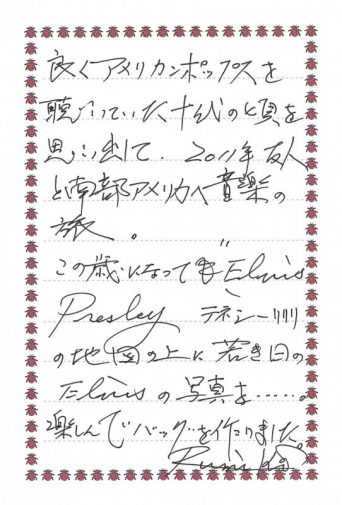 良くアメリカンポップスを
聴いていた十代の頃を
思い出して、2011年友人
と南部アメリカへ音楽の
旅。
この歳になって "Elvis
Presley テネシー州
の地図の上に若き日の
Elvisの写真を……。
楽しんでバッグを作りました。
Rumi